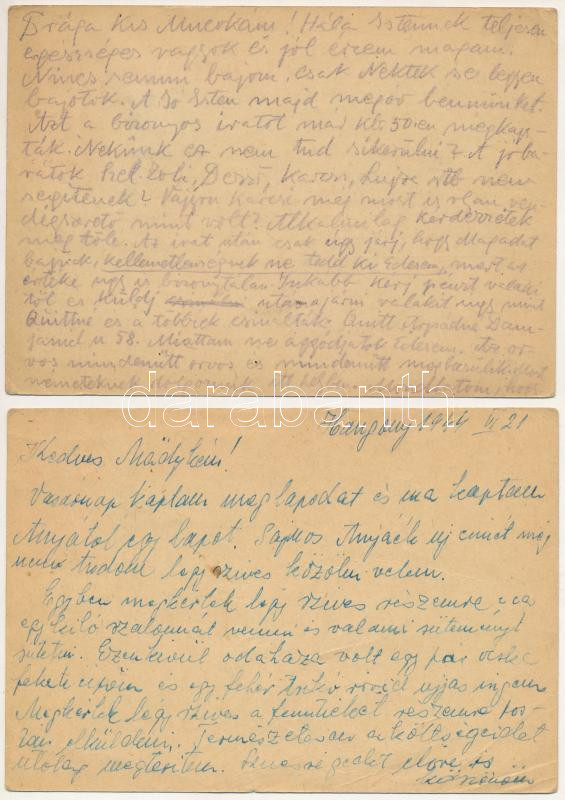 Drága Kis Mucókám! Hála Istennek teljesen
egészséges vagyok és jól érzem magam.
Nincs semmi bajom, csak Nektek se legyen
bajotok. A Jó Isten majd megóv bennünket.
Azt a bizonyos iratot már kb. 50-en megkap-
ták. Nekünk ez nem tud sikerülni? A jó ba-
rátok Zoli, Dezső, Karcsi, Lujza stb nem
segítenek? Vajjon Karcsi még most is olyan ven-
dégszerető mint volt? Alkalmilag kérdezzétek
meg tőle. Az irat után csak úgy járj, hogy Magadat
kellemetlenségnek ne tedd ki Édesem, mert az
értéke úgy is bizonytalan. Inkább kérj pénzt valaki
től és küldj utánajárni valakit úgy mint
Quittné és a többiek csinálták. Quitt Árpádné Dam-
janich u 58. Miattam ne aggódjatok Édesem. Az or-
vos mindenütt orvos és mindenütt megbecsülik
németeknek dolgozunk itt
Hangony 1944 VI 21
Kedves Mádykám!
Vasárnap kaptam meg lapodat és ma kaptam
Anyától egy lapot. Sajnos Anyáék új címét még
nem tudom légy szíves közölni velem.
Egyben megkérlek légy szíves részemre
egy kiló szalonnát venni és valami süteményt
sütetni. Ezenkívül odahaza volt egy pár
fekete cipőm és egy fehér trikó rövid ujjas ingem
Megkérlek légy szíves a fentieket részemre pos-
tán elküldeni. Természetesen a költségeidet
utólag megtérítem. Szívességedet előre is
köszönöm
darabanth